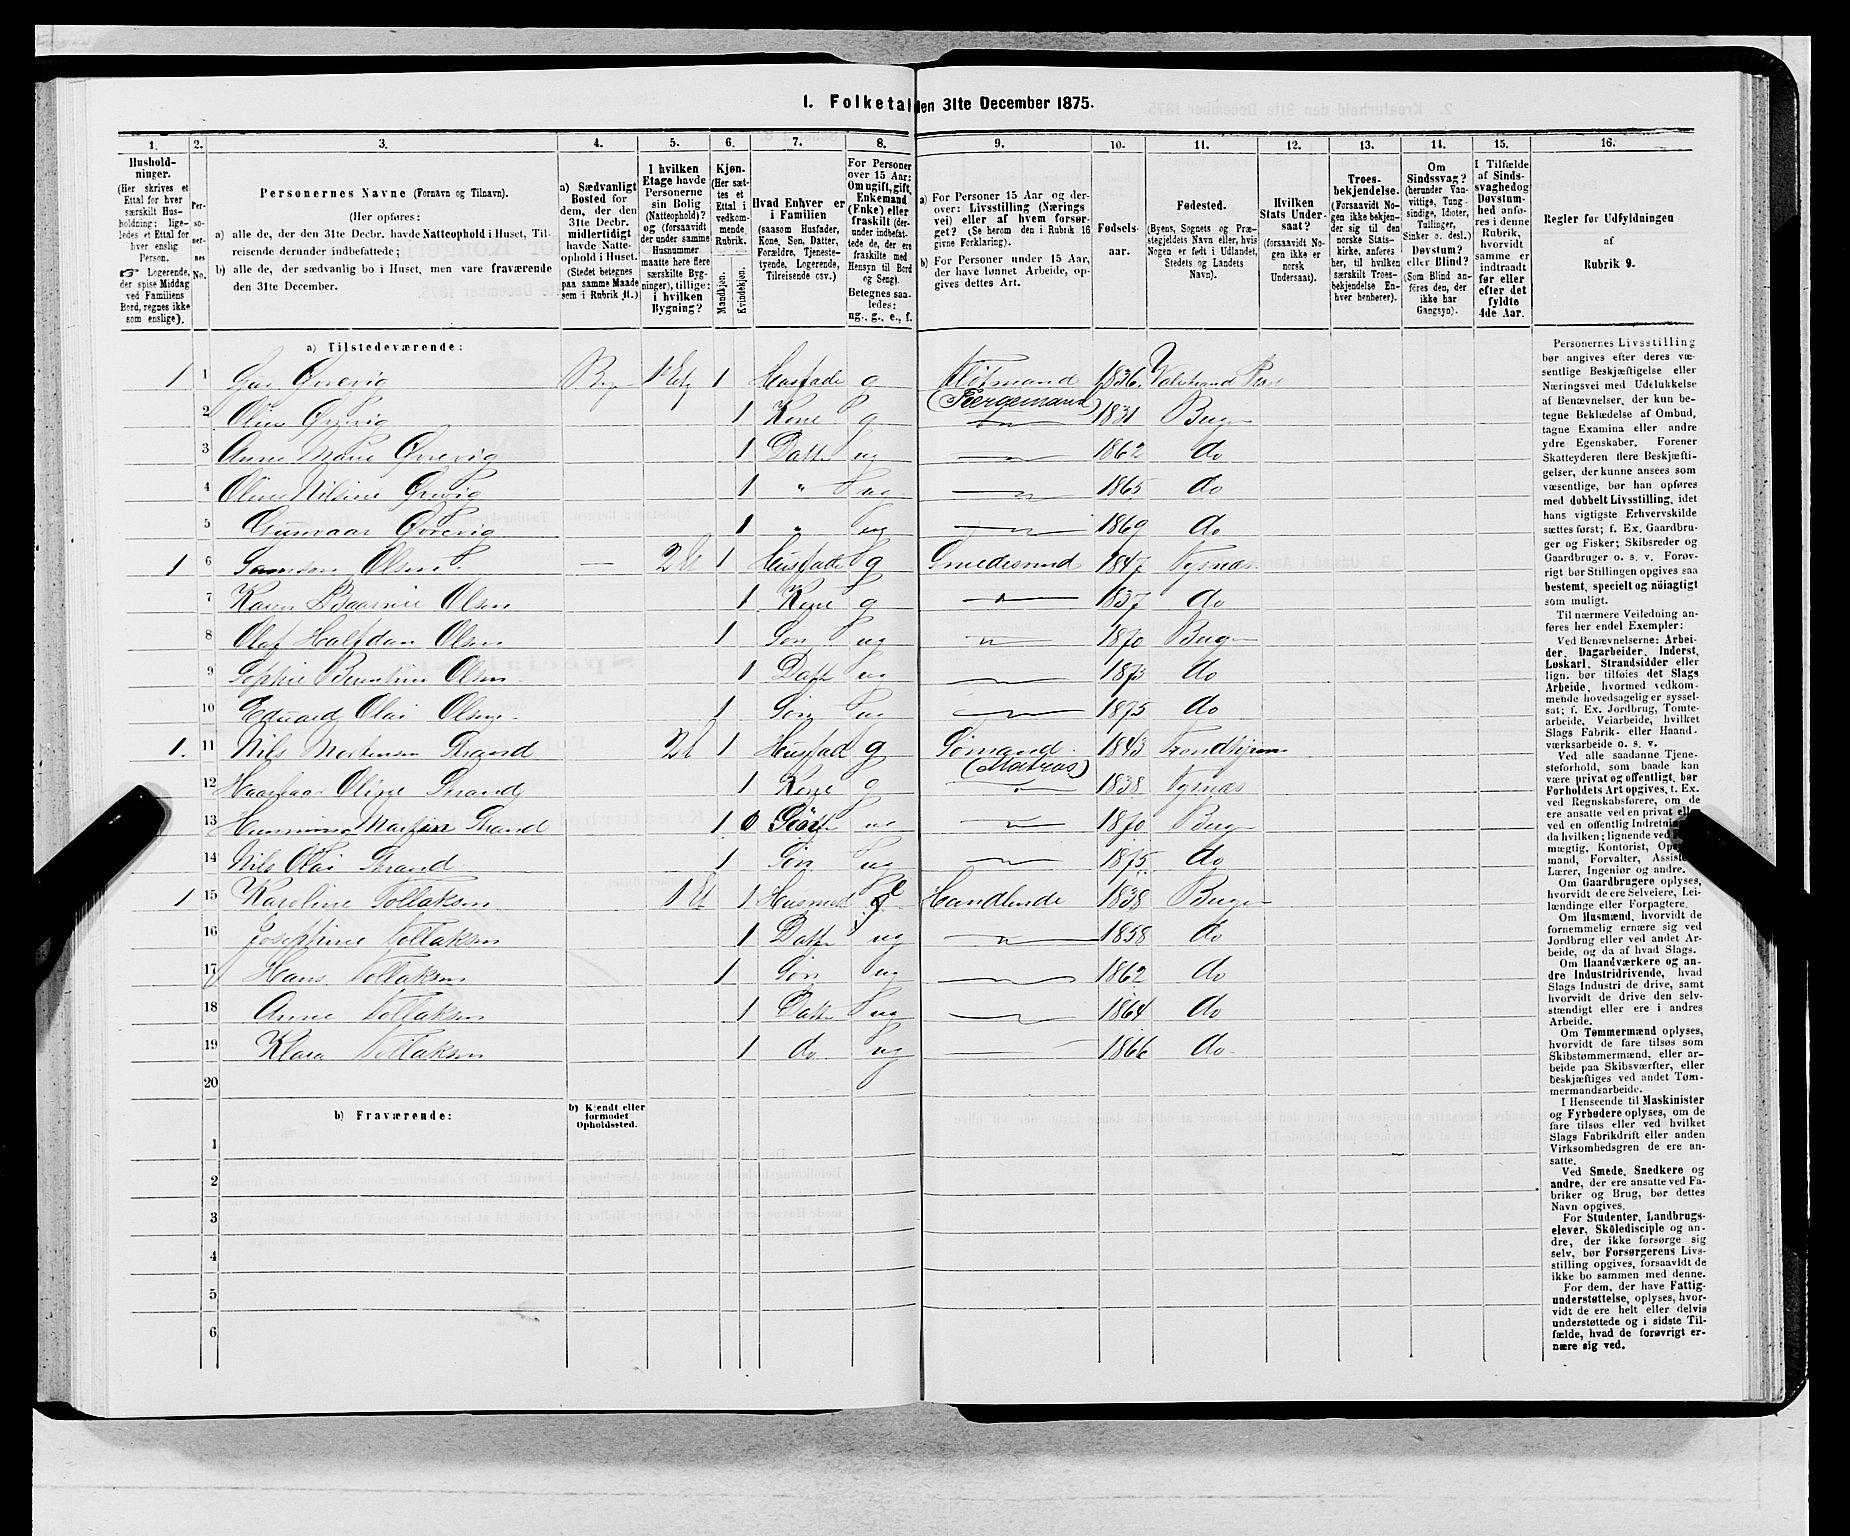 1. Folketal den 31te December 1875.
1. 2. 3. 4. 5. 6. 7. 8. 9. 10. 11. 12. 13. 14. 15. 16.
Hushold-
ninger.
(Her skrives et
Ettal for hver
særskilt Hus-
holdning; lige-
ledes et Ettal for
hver enslig
Person.
☞ Logerende,
der spise Middag
ved Familiens
Bord, regnes ikke
som enslige).
Per-
so-
ner-
nes
No.
Personernes Navne (Fornavn og Tilnavn).
(Her opføres:
a) alle de, der den 31te Decbr. havde Natteophold i Huset, Til-
reisende derunder indbefattede;
b) alle de, der sædvanlig bo i Huset, men vare fraværende
den 31te December.
a) Sædvanligt
Bosted for
dem, der den
31te Decbr.
midlertidigt
havde Natte-
ophold i Huset.
(Stedet betegnes
paa samme Maade
som i Rubrik 11.)
I hvilken
Etage havde
Personerne
sin Bolig
(Natteophold)?
og (forsaavidt
der under samme
Husnummer
matte høre flere
særskilte Byg-
ninger), tillige:
i hvilken
Bygning?
Kjøn.
(Her sæt-
tes et
Ettal i
vedkom-
mende
Rubrik.
Mandkjøn.
Kvindekjøn.
Hvad Enhver er
i Familien
(saasom Husfader,
Kone, Søn, Datter,
Forældre, Tjeneste-
tyende, Logerende,
Tilreisende osv.)
For Personer
over 15 Aar:
Om ugift, gift,
Enkemand
(Enke) eller
fraskilt (der-
under indbefat-
tede de, der ere
fraskilte med
Hensyn til Bord
og Seng).
Betegnes saa-
ledes:
ug., g., e., f.
a) For Personer 15 Aar og der-
over: Livsstilling (Nærings
vei) eller af hvem forsør-
get? (Se herom den i Rubrik 16
givne Forklaring).
b) For Personer under 15 Aar,
der have lønnet Arbeide, op-
gives dettes Art.
Fødsels-
aar.
Fødested.
(Byens, Sognets og Præ-
stegjeldets Navn eller, hvis
Nogen er født i Udlandet,
Stedets og Landets
Navn).
Hvilken
Stats Under-
saat?
(forsaavidt No-
gen ikke er
norsk
Undersaat).
Troes-
bekjendelse.
(Forsaavidt No-
gen ikke bekjen-
der sig til den
norske Stats-
kirke, anføres
her, til hvilken
særskilt Troes-
bekjendelse En-
hver henhører).
Om
Sindssvag?
(herunder Van-
vittige, Tung-
sindige, Idioter,
Tullinger,
Sinker o. desl.)
Døvstum?
eller Blind?
(Som Blind an-
føres den, der
ikke har
Gangsyn).
I Tilfælde
af Sinds-
svaghedog
Døvstum-
hed anfø-
res i denne
Rubrik,
hvorvidt
samme er
indtraadt
før eller
efter det
fyldte
4de Aar.
Regler for Udfyldningen
af
Rubrik 9.
a) Tilstedeværende:
1 1 1 Husfade g 1836
2 Øvrevig 1 Kone g (Færgemand) 1831 Bergen
3 Anne Marie Øvrevig 1 Datte ug 1862 do
4 Oline Nilsine Øvrevig 1 " ug 1865 do
5 Øvrevig 1 " ug 1869 do
1 6 Samson Olsen 2 1 Husfade g Smedesvend 1847 Tysnæs
7 Karen Olsen 1 Kone g 1837 do
8 Olaf Halfdan Olsen 1 Søn ug 1870 Bergen
9 Sophie Olsen 1 Datte ug 1873 do
10 Eduard Olai Olsen 1 Søn ug 1875 do
1. 11 Nils Mortensen Strand 2 1 Husfad g Sømand (Matros) 1843 Trondhjem
12 Oline Strand 1 Kone g 1838 Tysnæs
13 Henning Martin Strand 1 Søn ug 1870 Bergen
14 Nils Olai Strand 1 Søn ug 1875 do
1 15 Karoline Tollaksen 1 1 e Handlende 1838 Bergen
16 Josephine Tollaksen 1 Datte ug 1858 do
17 Hans Tollaksen 1 Søn ug 1862 do
18 Anne Tollaksen 1 Datte ug 1864 do
19 Klara Tollaksen 1 do. ug 1866 do
20
b) Fraværende:
b) Kjendt eller
formodet
Opholdssted.
1
2
3
4
5
6
Personernes Livsstilling
bør angives efter deres væ-
sentlige Beskjæftigelse eller
Næringsvei med Udelukkelse
af Benævnelser, der kun be-
tegne Beklædelse af Ombud,
tagne Examina eller andre
ydre Egenskaber. Forener
Skatteyderen flere Beskjæfti-
gelser, der kunne ansees som
væsentlige, bør han opføres
med dobbelt Livsstilling, idet
hans vigtigste Erhvervskilde
sættes først; f. Ex. Gaardbru-
ger og Fisker; Skibsreder og
Gaardbruger o. s. v. Forøv-
rigt bør Stillingen opgives saa
bestemt, specielt og nöiagtigt
som muligt.
Til nærmere Veiledning an-
føres her endel Exempler:
Ved Benævnelserne: Arbei-
der, Dagarbeider, Inderst,
Løskarl, Strandsidder eller
lign. bør tilføies det Slags
Arbeide, hvormed vedkom-
mende hovedsagelig er syssel-
sat; f. Ex. Jordbrug, Tomte-
arbeide, Veiarbeide, hvilket
Slags Fabrik- eller Haand-
værksarbeide o. s. v.
Ved alle saadanne Tjene-
steforhold, som baade kan
være privat og offentligt, bør
Forholdets Art opgives, t. Ex.
ved Regnskabsførere, om de
ere ansatte ved en privat eller
ved en offentlig Indretning
da hvilken; lignende ved
mægtig, Kontorist,
mand, Forvalter,
Lærer, Ingeniør og andre.
Om Gaardbrugere oplyses,
hvorvidt de ere Selveiere, Lei-
lændinge eller Forpagtere.
Om Husmænd, hvorvidt de
fornemmelig ernære sig ved
Jordbrug eller ved andet Ar-
beide, og da af hvad Slags.
Om Haandværkere og an-
dre Industridrivende, hvad
Slags Industri de drive, samt
hvorvidt de drive den selv-
stændigt eller ere i andres
Arbeide.
Om Tømmermænd oplyses,
hvorvidt de fare tilsøs som
Skibstømmermænd, eller ar-
beide paa Skibsværfter, eller
beskjæftiges ved andet Tøm-
mermandsarbeide.
I Henseende til Maskinister
og Fyrbødere oplyses, om de
fare tilsøs eller ved hvilket
Slags Fabrikdrift eller anden
Virksomhedsgren de ere an-
satte.
Ved Smede, Snedkere og
andre, der ere ansatte ved Fa-
briker og Brug, bør dettes
Navn opgives.
For Studenter, Landbrugs-
elever, Skoledisciple og an-
dre, der ikke forsørge sig
selv, bør Forsørgerens Livs-
stilling opgives, forsaavidt de
ikke bo sammen med denne.
For dem, der have Fattig-
understøttelse, oplyses, hvor-
vidt de ere helt eller delvis
understøttede og i sidste Til-
fælde, hvad de forøvrigt er-
nære sig ved.